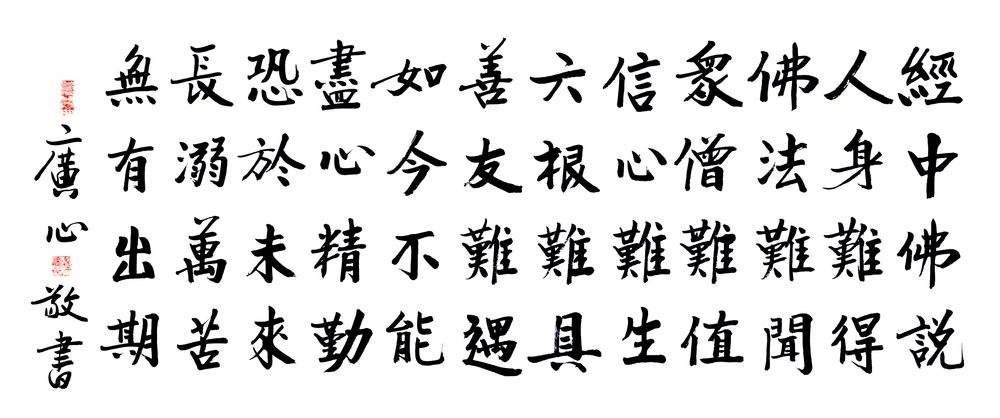 經中佛説
人身難得
佛法難聞
衆僧難值
信心難生
六根難具
善友難遇
如今不能
盡心精勤
恐於未來
長溺萬苦
無有出期
廣心敬書